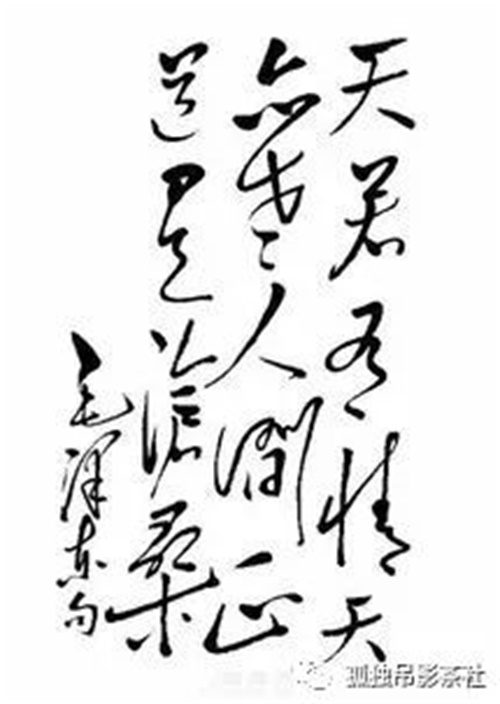 天若有情天
亦老人間正
道是滄桑
毛泽东句
孤独吊影茶社